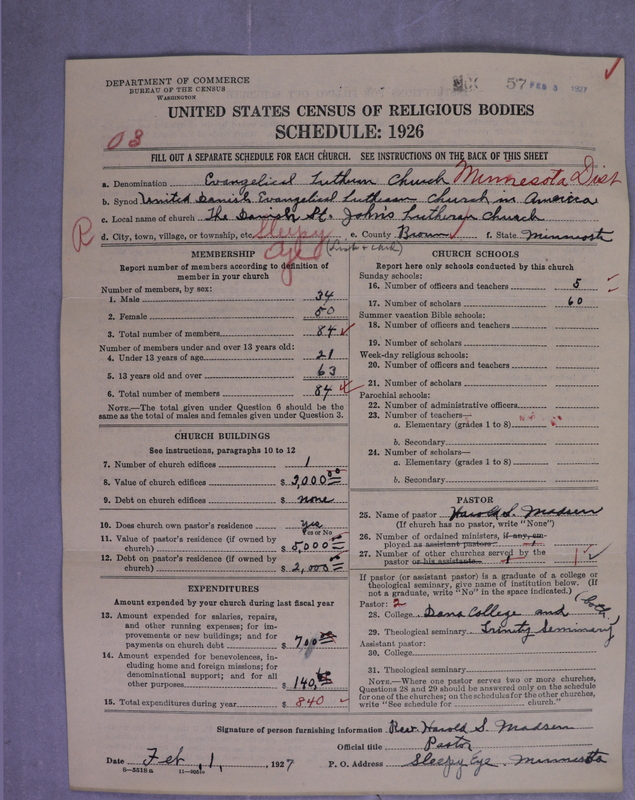 DEPARTMENT OF COMMERCE
BUREAU OF THE CENSUS
WASHINGTON
57 FEB 3 1927
UNITED STATES CENSUS OF RELIGIOUS BODIES
SCHEDULE: 1926
03
FILL OUT A SEPARATE SCHEDULE FOR EACH CHURCH. SEE INSTRUCTIONS ON THE BACK OF THIS SHEET
a. Denomination Evangelical Lutheran Church Minnesota Dist
b. Synod United Danish Evangelical Lutheran Church in America
c. Local name of church The Danish St. John's Lutheran Church
R d. City, town, village, or township, etc. Sleepy Eye e. County Brown f. State Minnesota
MEMBERSHIP
Report number of members according to definition of
member in your church
Number of members, by sex:
1. Male 34
2. Female 50
3. Total number of members 84
Number of members under and over 13 years old:
4. Under 13 years of age 21
5. 13 years old and over 63
6. Total number of members 84
NOTE.—The total given under Question 6 should be
same as the total of males and females given under Question 3.
CHURCH BUILDINGS
See instructions, paragraphs 10 to 12
7. Number of church edifices 1
8. Value of church edifices $ 3,000 00
9. Debt on church edifices $ none
10. Does church own pastor's residence yes
Yes or No
11. Value of pastor's residence (if owned by
church) $ 5,000 00
12. Debt on pastor's residence (if owned by
church) $ 2,000 00
EXPENDITURES
Amount expended by your church during last fiscal year
13. Amount expended for salaries, repairs,
and other running expenses; for im-
provements or new buildings; and for
payments on church debt $ 700 00
14. Amount expended for benevolences,
including home and foreign missions; for
denominational support; and for all
other purposes $ 140.
15. Total expenditures during year $ 840
CHURCH SCHOOLS
Report here only schools conducted by this church
Sunday schools:
16. Number of officers and teachers 5
17. Number of scholars 60
Summer vacation Bible schools:
18. Number of officers and teachers
19. Number of scholars
Week-day religious schools:
20. Number of officers and teachers
21. Number of scholars
Parochial schools:
22. Number of administrative officers
23. Number of teachers—
a. Elementary (grades 1 to 8)
b. Secondary
24. Number of scholars—
a. Elementary (grades 1 to 8)
b. Secondary
PASTOR
25. Name of pastor Harold S. Madsen
(If church has no pastor, write "None")
26. Number of ordained ministers, if any, em-
ployed as assistant pastor 1
27. Number of other churches served by the
pastor or his assistants 1 1
If pastor (or assistant pastor) is a graduate of a college or
theological seminary, give name of institution below. (If
not a graduate, write "No" in the space indicated.)
Pastor: 2
28. College Dana College and
29. Theological seminary Trinity Seminary
Assistant pastor:
30. College
31. Theological seminary
NOTE.—Where one pastor serves two or more churches,
Questions 28 and 29 should be answered only on the schedule
for one of the churches; on the schedules for the other churches,
write "See schedule for church."
Signature of person furnishing information Rev. Harold S. Madsen
Official title Pastor
Date Feb. 1, 1927 P. O. Address Sleepy Eye, Minnesota